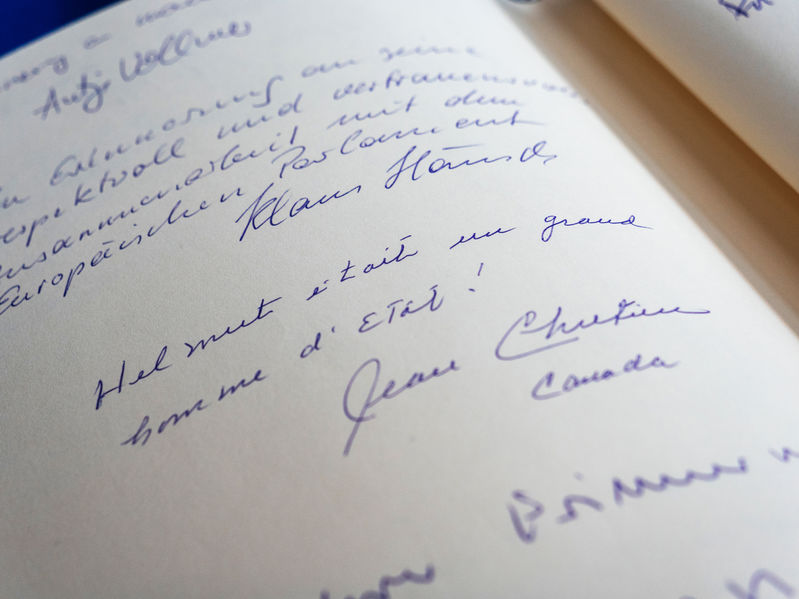 Antje Vollmer
Erinnerung an seine
respektvoll und vertrauensvolle
Zusammenarbeit mit dem
Europäischen Parlament
Klaus Hänsch
Helmut était un grand
homme d'Etat !
Jean Chrétien
Canada